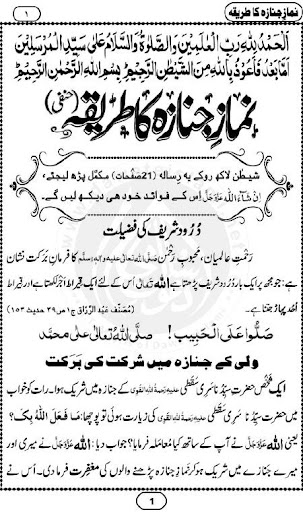 نمازِ جنازہ کا طریقہ
۱
اَلْحَمْدُ لِلّٰهِ رَبِّ الْعٰلَمِیْنَ وَالصَّلٰوةُ وَالسَّلَامُ عَلٰی سَیِّدِ الْمُرْسَلِیْنَ
اَمَّا بَعْدُ فَاَعُوْذُ بِاللّٰهِ مِنَ الشَّیْطٰنِ الرَّجِیْمِ بِسْمِ اللّٰهِ الرَّحْمٰنِ الرَّحِیْمِ
نمازِ جنازہ کا طریقہ (حنفی)
شیطٰن لاکھ روکے یہ رِسالہ (21صَفحات) مکمَّل پڑھ لیجئے،
اِنْ شَآءَ اللہ عَزَّوَجَلَّ اِس کے فوائد خود ہی دیکھ لیں گے۔
دُرُود شریف کی فضیلت
رَحْمتِ عالمیان، محبوبِ رَحْمٰن صلَّی اللہ تعالٰی علیہ واٰلہٖ وسلَّم کا فرمانِ بَرَکت نشان
ہے: جو مجھ پر ایک بار دُرُود شریف پڑھتا ہے اللہ تعالٰی اُس کے لئے ایک قیراط اَجر لکھتا ہے اور قیراط
اُحُد پہاڑ جتنا ہے۔ (مُصَنَّف عَبْدُ الرَّزّاق ج۱ ص۳۹ حدیث ۱۵۳)
صَلُّوْا عَلَی الْحَبِیْب! صلَّی اللہُ تعالٰی علٰی محمَّد
ولی کے جنازہ میں شرکت کی بَرَکت
ایک شَخْص حضرتِ سیِّدُنا سَرِی سَقَطی علیہ رَحْمَۃُ اللہِ القوی کے جنازہ میں شریک ہوا۔ رات کو خواب
میں حضرتِ سیِّدُنا سَرِی سَقَطی علیہ رَحْمَۃُ اللہِ القوی کی زیارت ہوئی تو پوچھا: مَا فَعَلَ اللہُ بِکَ؟
یعنی اللہ عَزَّوَجَلَّ نے آپ کے ساتھ کیا مُعامَلہ فرمایا؟ جواب دیا: اللہ عَزَّوَجَلَّ نے میری اور
میرے جنازے میں شریک ہو کر نَمازِ جنازہ پڑھنے والوں کی مغفِرت فرمادی۔ اُس نے
1